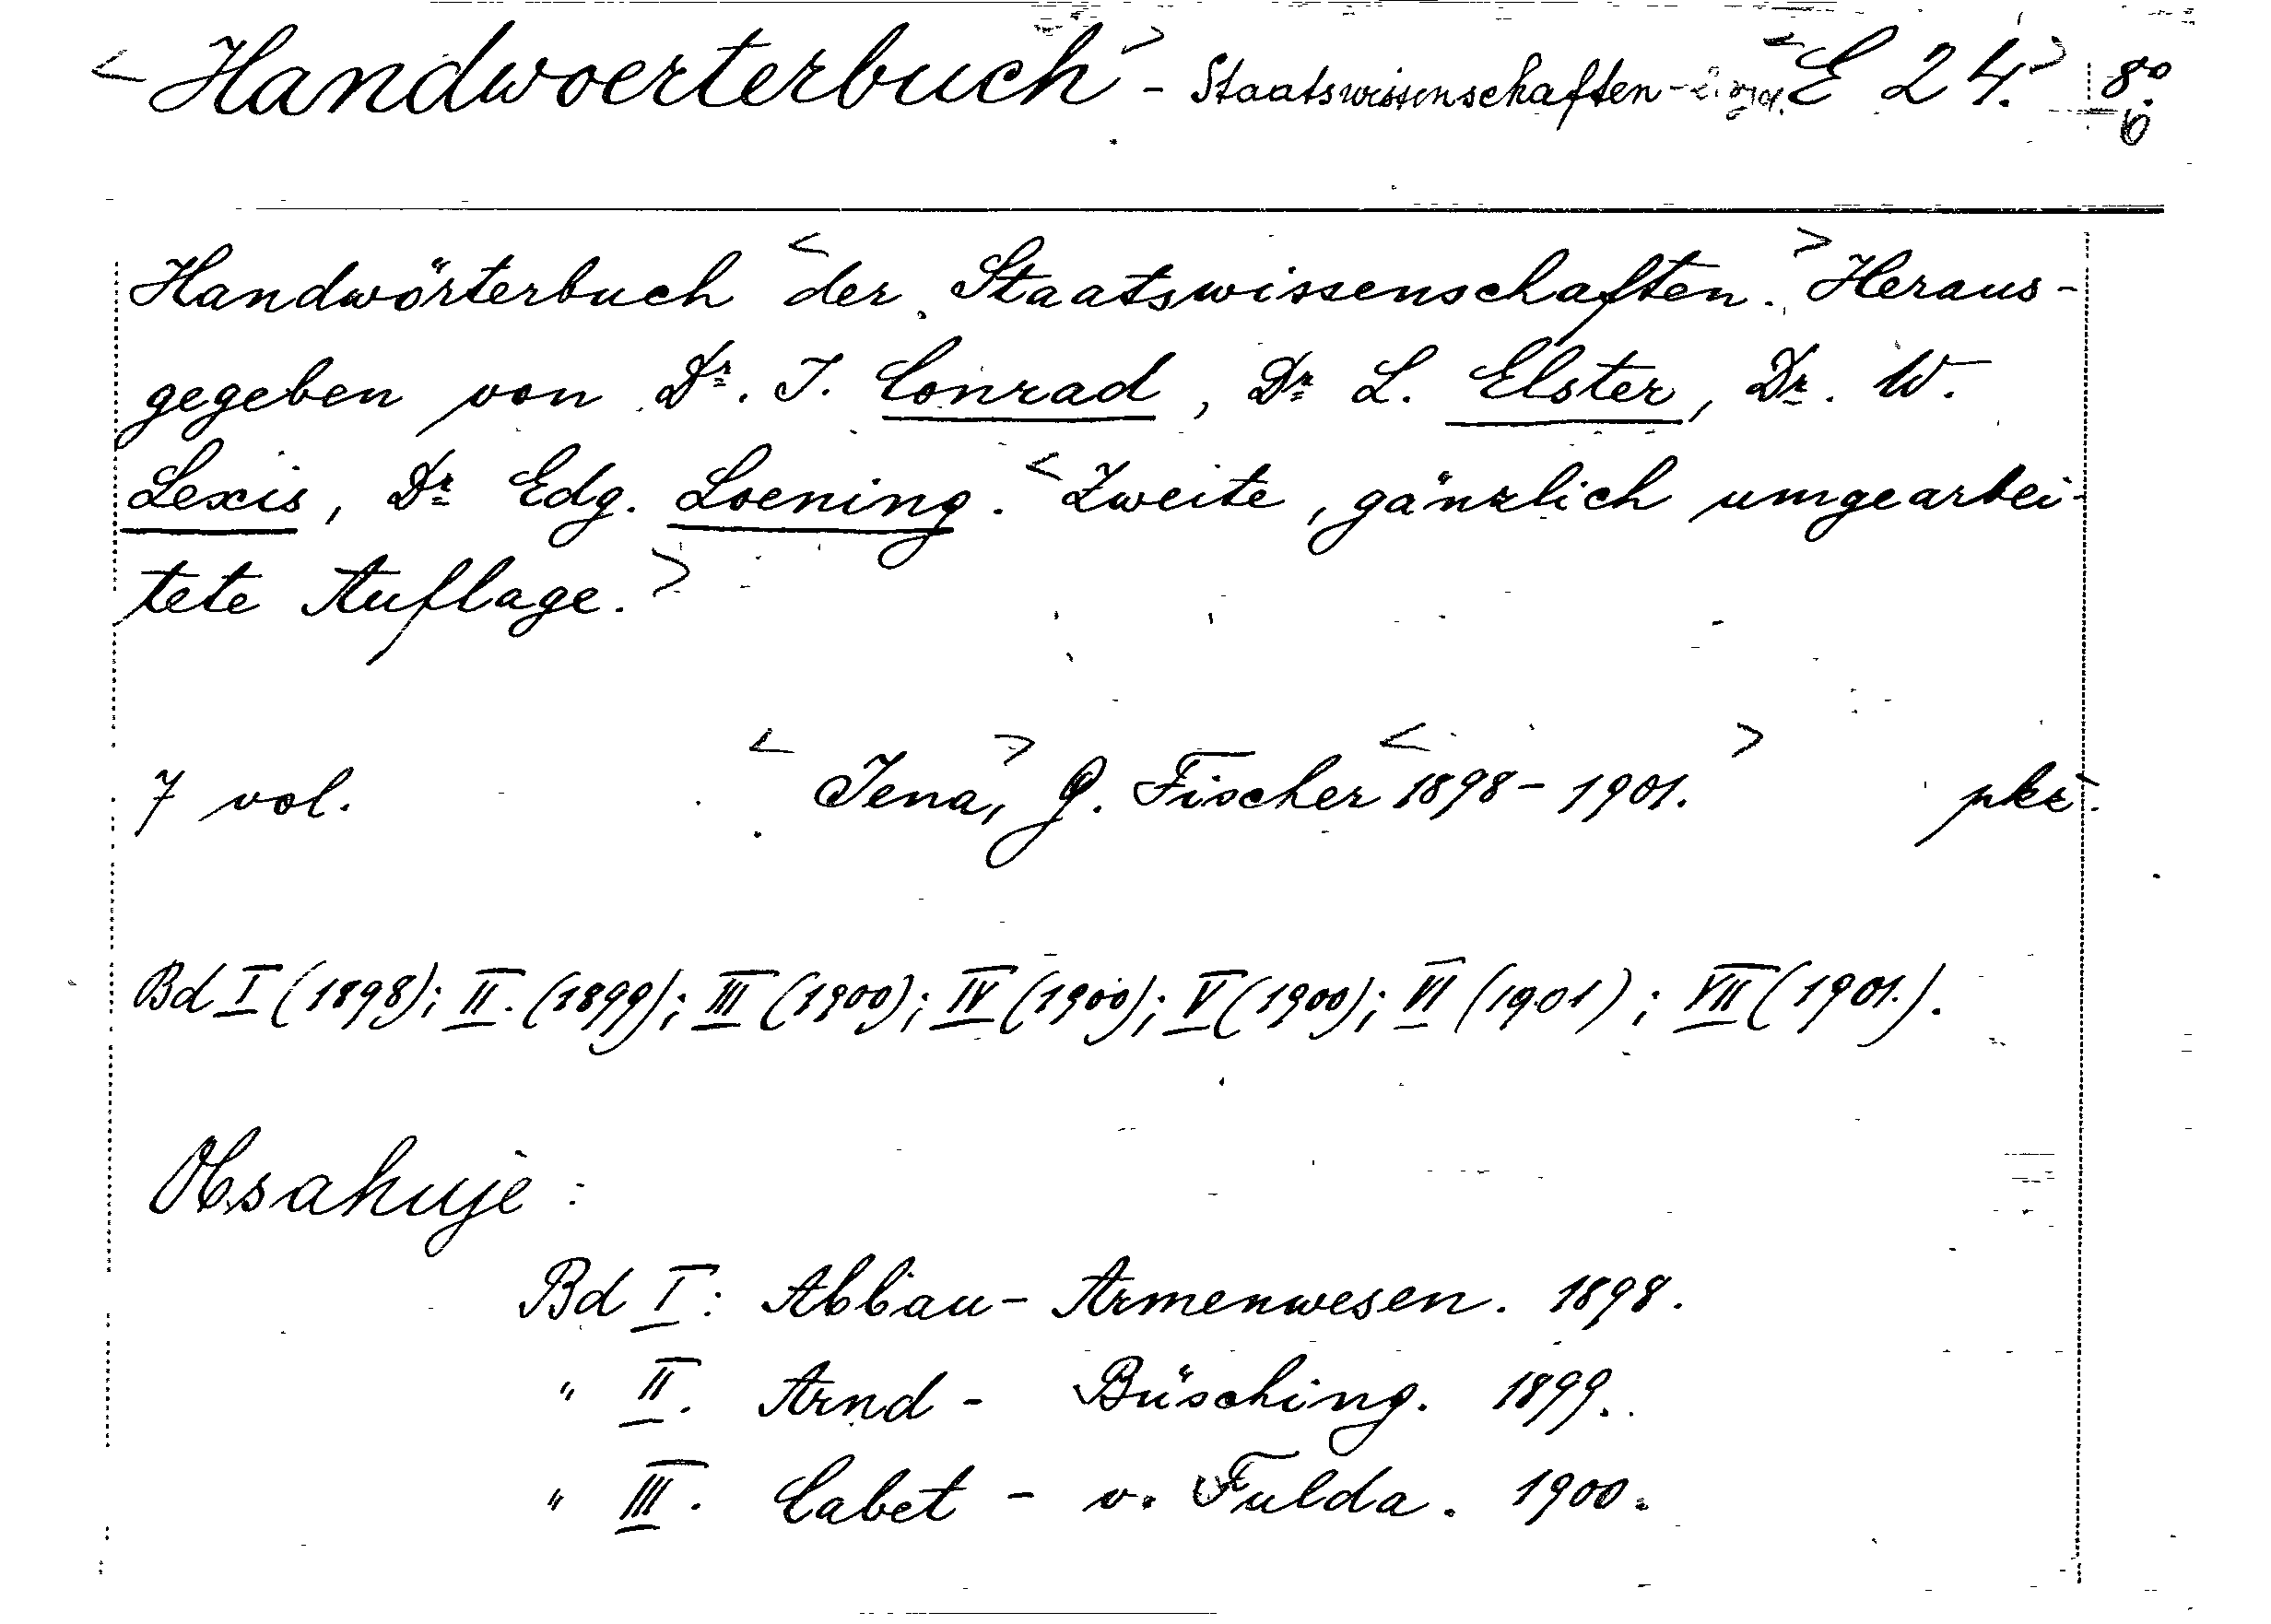 <Handwoerterbuch> - Staatswissenschaften - <E 24.> 8°
6
Handwörterbuch <der Staatswissenschaften.> Heraus-
gegeben von Dr. J. Conrad, Dr L. Elster, Dr. W.
Lexis, Dr Edg. Loening. <Zweite, gänzlich umgearbei-
tete Auflage.>
7 vol. <Jena,> G. Fischer <1898-1901.> pkz.
Bd I (1898); II. (1899); III (1900); IV (1900); V (1900); VI (1901); VII (1901.).
Obsahuje:
Bd I: Abbau - Armenwesen. 1898.
" II. Arnd - Büsching. 1899.
" III. Cabet - v. Fulda. 1900.